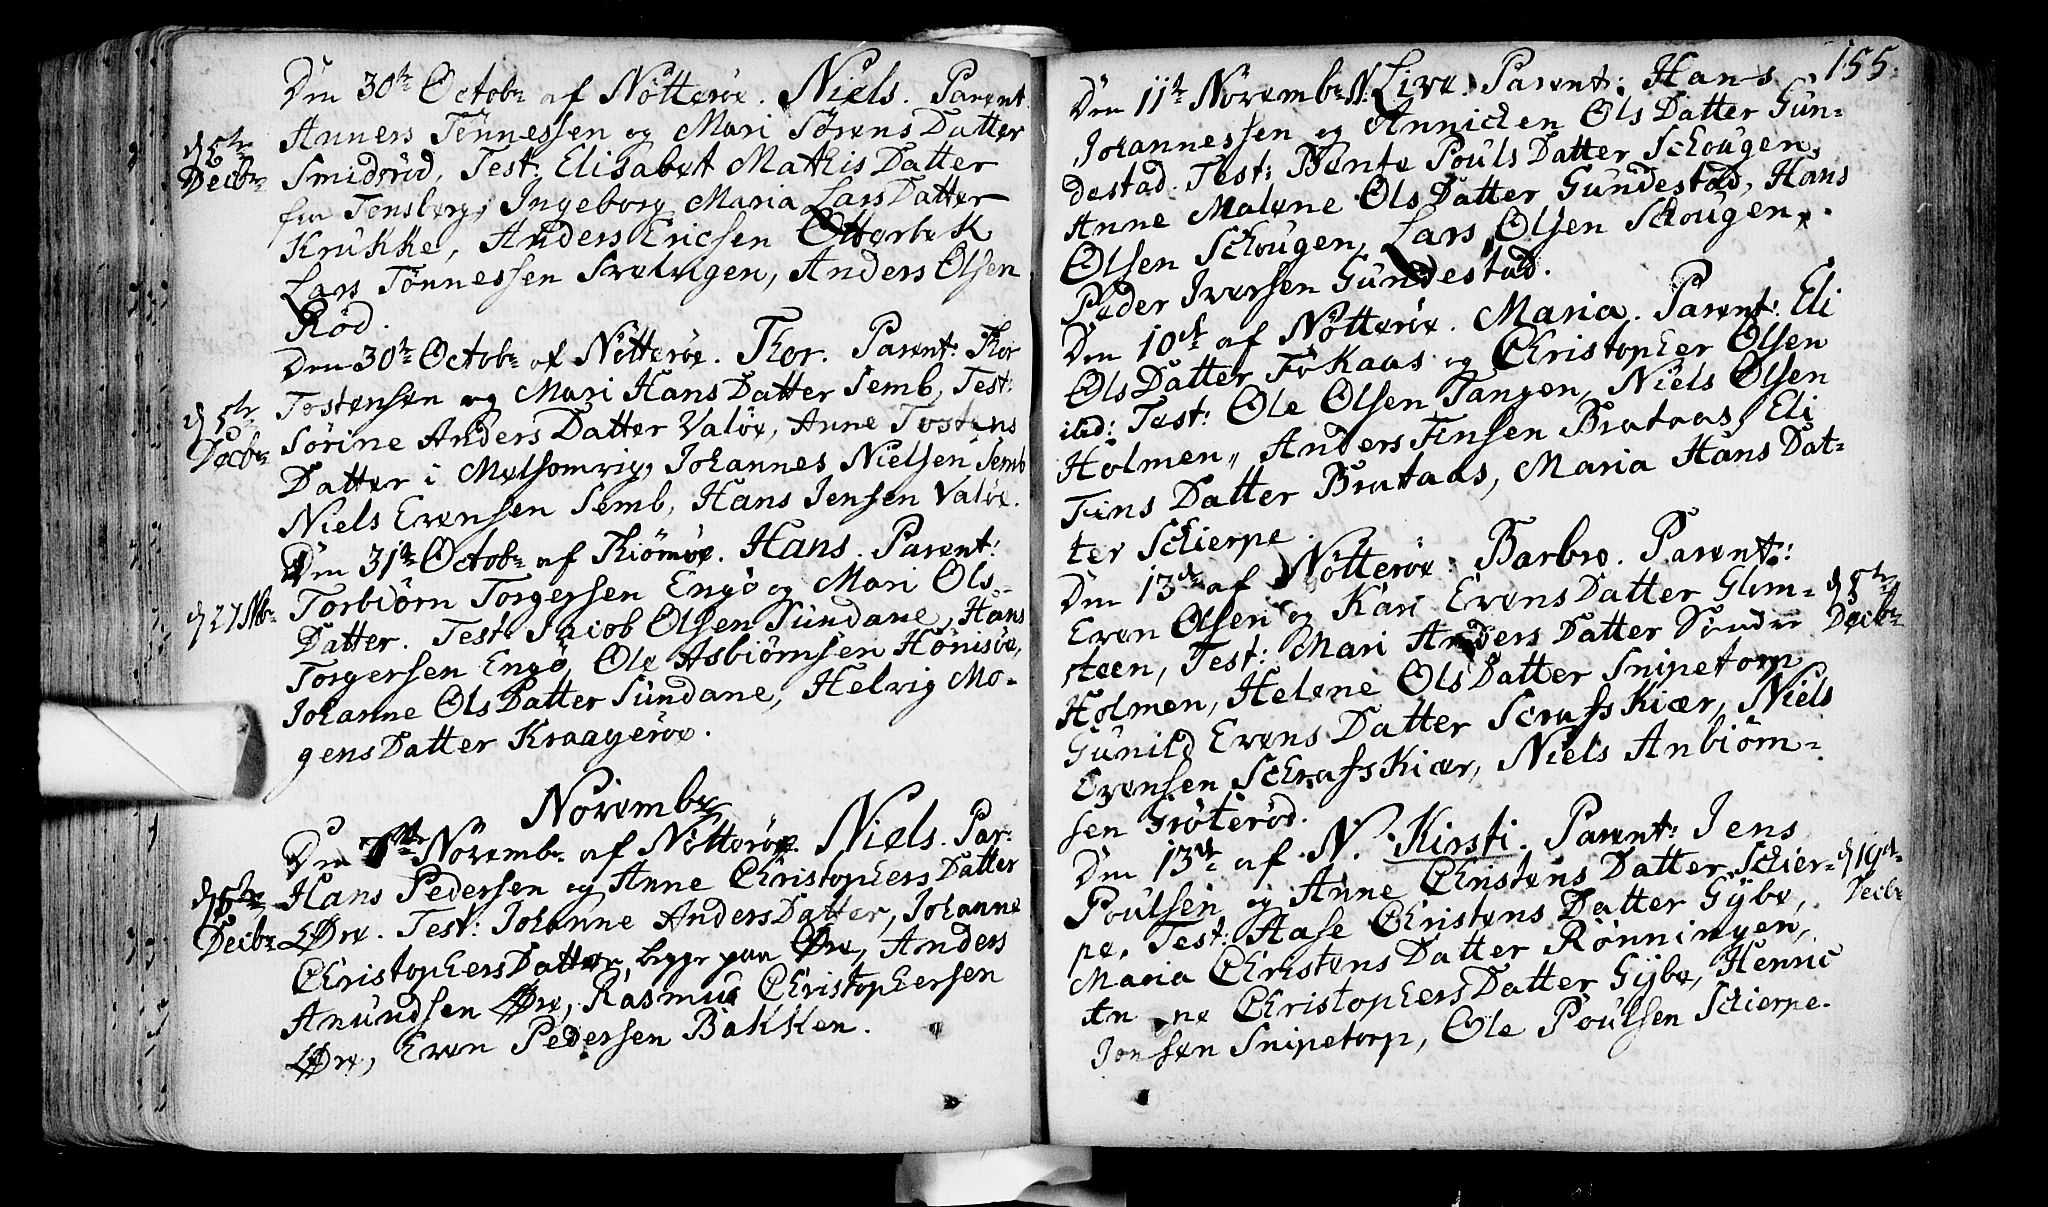 Den 30te Octobr af Nötteröe. Niels. Parent
Anners Tönnessen og Mari Sörens Datter
Smidsröd, Test: Elisabet Mathis Datter
fra Tensberg, Ingeborg Maria Lars Datter
Krukke, Anders Ericsen Otterbek
Lars Tönnessen Svelvigen, Anders Olsen
Röd.
d 5te
Decbr
Den 30te Octobr af Nötteröe. Thor. Parent: Thor
Tostensen og Mari Hans Datter Semb, Test:
Sörine Anders Datter Valöe, Anne Tostens
Datter i Melsomvig, Johannes Nielsen Semb
Niels Evensen Semb, Hans Jensen Valöe.
d 5te
Decbr
Den 31te Octobr af Thiömöe. Hans. Parent:
Torbiörn Torgersen Engö og Mari Ols-
Datter. Test: Jacob Olsen Sundane, Hans
Torgersen Engö, Ole Asbiörnsen Hönisöe,
Johanne Ols Datter Sundane, Helvig Mo-
gens Datter Kraageröe.
d 27 Nbr
Novembr
Den Novembr af Nötteröe. Niels. Par:
Hans Pedersen og Anne Christophers Datter
Øre. Test: Johanne Anders Datter, Johanne
Christophers Datter, begge paa Øre, Anders
Anundsen Øre, Rasmus Christophersen
Øre, Even Pedersen Bakken.
d 5te
Decbr
155.
Den 11te Novembr N. Live. Parent: Hans
Johannessen og Annichen Ols Datter Gun-
destad. Test: Bente Pouls Datter Schougen,
Anne Malene Ols Datter Gundestad, Hans
Olsen Schougen, Lars Olsen Schougen,
Peder Iversen Gundestad.
Den 10de af Nötteröe. Maria. Parent: Eli
Ols Datter Fokaas og Christopher Olsen
ibd: Test: Ole Olsen Tangen, Niels Olsen
Holmen, Anders Finsen Brataas, Eli
Fins Datter Brataas, Maria Hans Dat-
ter Schierpe.
Den 13de af Nötteröe. Barbro. Parent:
Even Olsen og Kari Evens Datter Glom-
steen, Test: Mari Anders Datter Sondre
Holmen, Helene Ols Datter Snipetorp
Gunild Evens Datter Scrafskiær, Niels
Evensen Schrafskiær, Niels Anbiörn-
sen Gröteröd.
d 5te
Decbr
Den 13de af N. Kirsti. Parent: Jens
Poulsen og Anne Christens Datter Schier-
pe, Test: Aase Christens Datter Gÿbe,
Maria Christens Datter Rönningen,
Anne Christophers Datter Gÿbe, Henric
Jonsen Snipetorp, Ole Poulsen Schierpe.
d 19de
Decbr